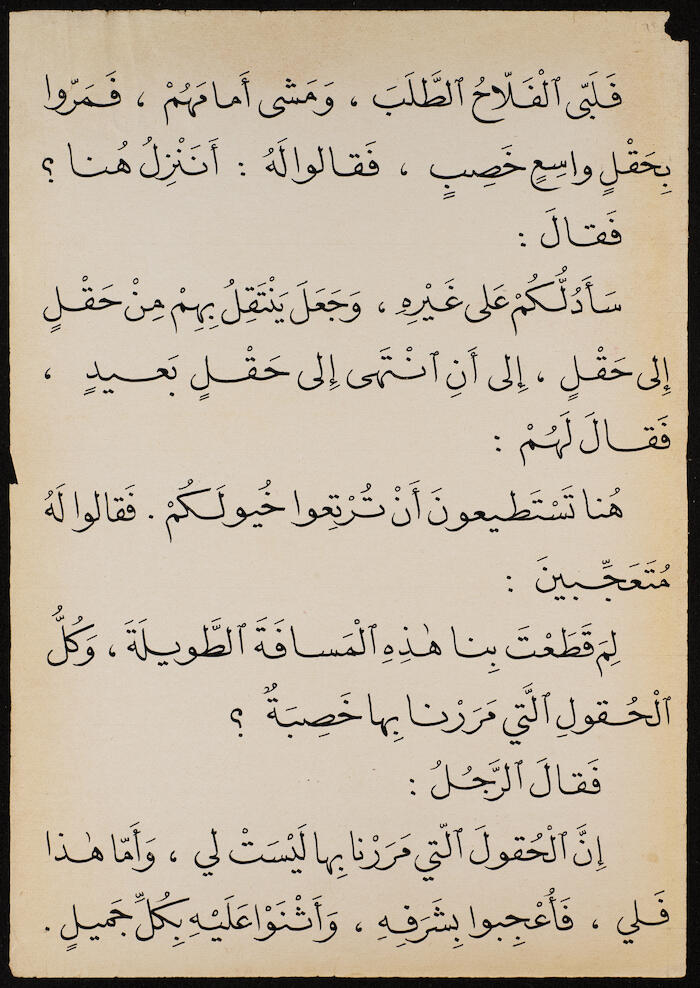 فَلَبّى ٱلْفَلّاحُ ٱلطَّلَبَ ، وَمَشى أَمامَهُمْ ، فَمَرّوا
بِحَقْلٍ واسِعٍ خَصِبٍ ، فَقالوا لَهُ : أَنَنْزِلُ هُنا ؟
فَقالَ :
سَأَدُلُّكُمْ عَلى غَيْرِهِ ، وَجَعَلَ يَنْتَقِلُ بِهِمْ مِنْ حَقْلٍ
إِلى حَقْلٍ ، إِلى أَنِ ٱنْتَهى إِلى حَقْلٍ بَعيدٍ ،
فَقالَ لَهُمْ :
هُنا تَسْتَطيعونَ أَنْ تُرْتِعوا خُيولَكُمْ . فَقالوا لَهُ
مُتَعَجِّبينَ :
لِمَ قَطَعْتَ بِنا هٰذِهِ ٱلْمَسافَةَ ٱلطَّويلَةَ ، وَكُلُّ
ٱلْحُقولِ ٱلَّتي مَرَرْنا بِها خَصِبَةٌ ؟
فَقالَ ٱلرَّجُلُ :
إِنَّ ٱلْحُقولَ ٱلَّتي مَرَرْنا بِها لَيْسَتْ لي ، وَأَمّا هٰذا
فَلي ، فَأُعْجِبوا بِشَرَفِهِ ، وَأَثْنَوْا عَلَيْهِ بِكُلِّ جَميلٍ .